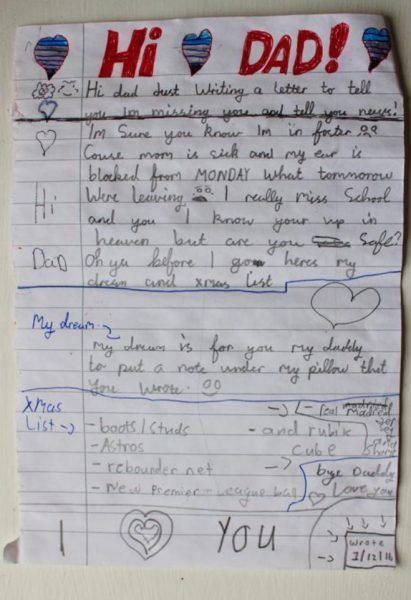 Hi DAD!
Hi dad Just Writing a letter to tell
you Im missing you and tell you news!
Im Sure you know Im in foster
Couse mom is sick and my ear is
blocked from MONDAY what tommorow
Were leaving I really miss School
Hi
and you I know your up in
heaven but are you Safe?
Dad
Oh ya before I go heres my
dream and xmas list
My dream
my dream is for you my daddy
to put a note under my pillow that
you wrote.
Xmas
List
- boots/studs
- Astros
- rebounder net
- New Premier League bag
- and rubix
cube
- real Madred
bye Daddy
Love you
I YOU
Wrote
1/12/16